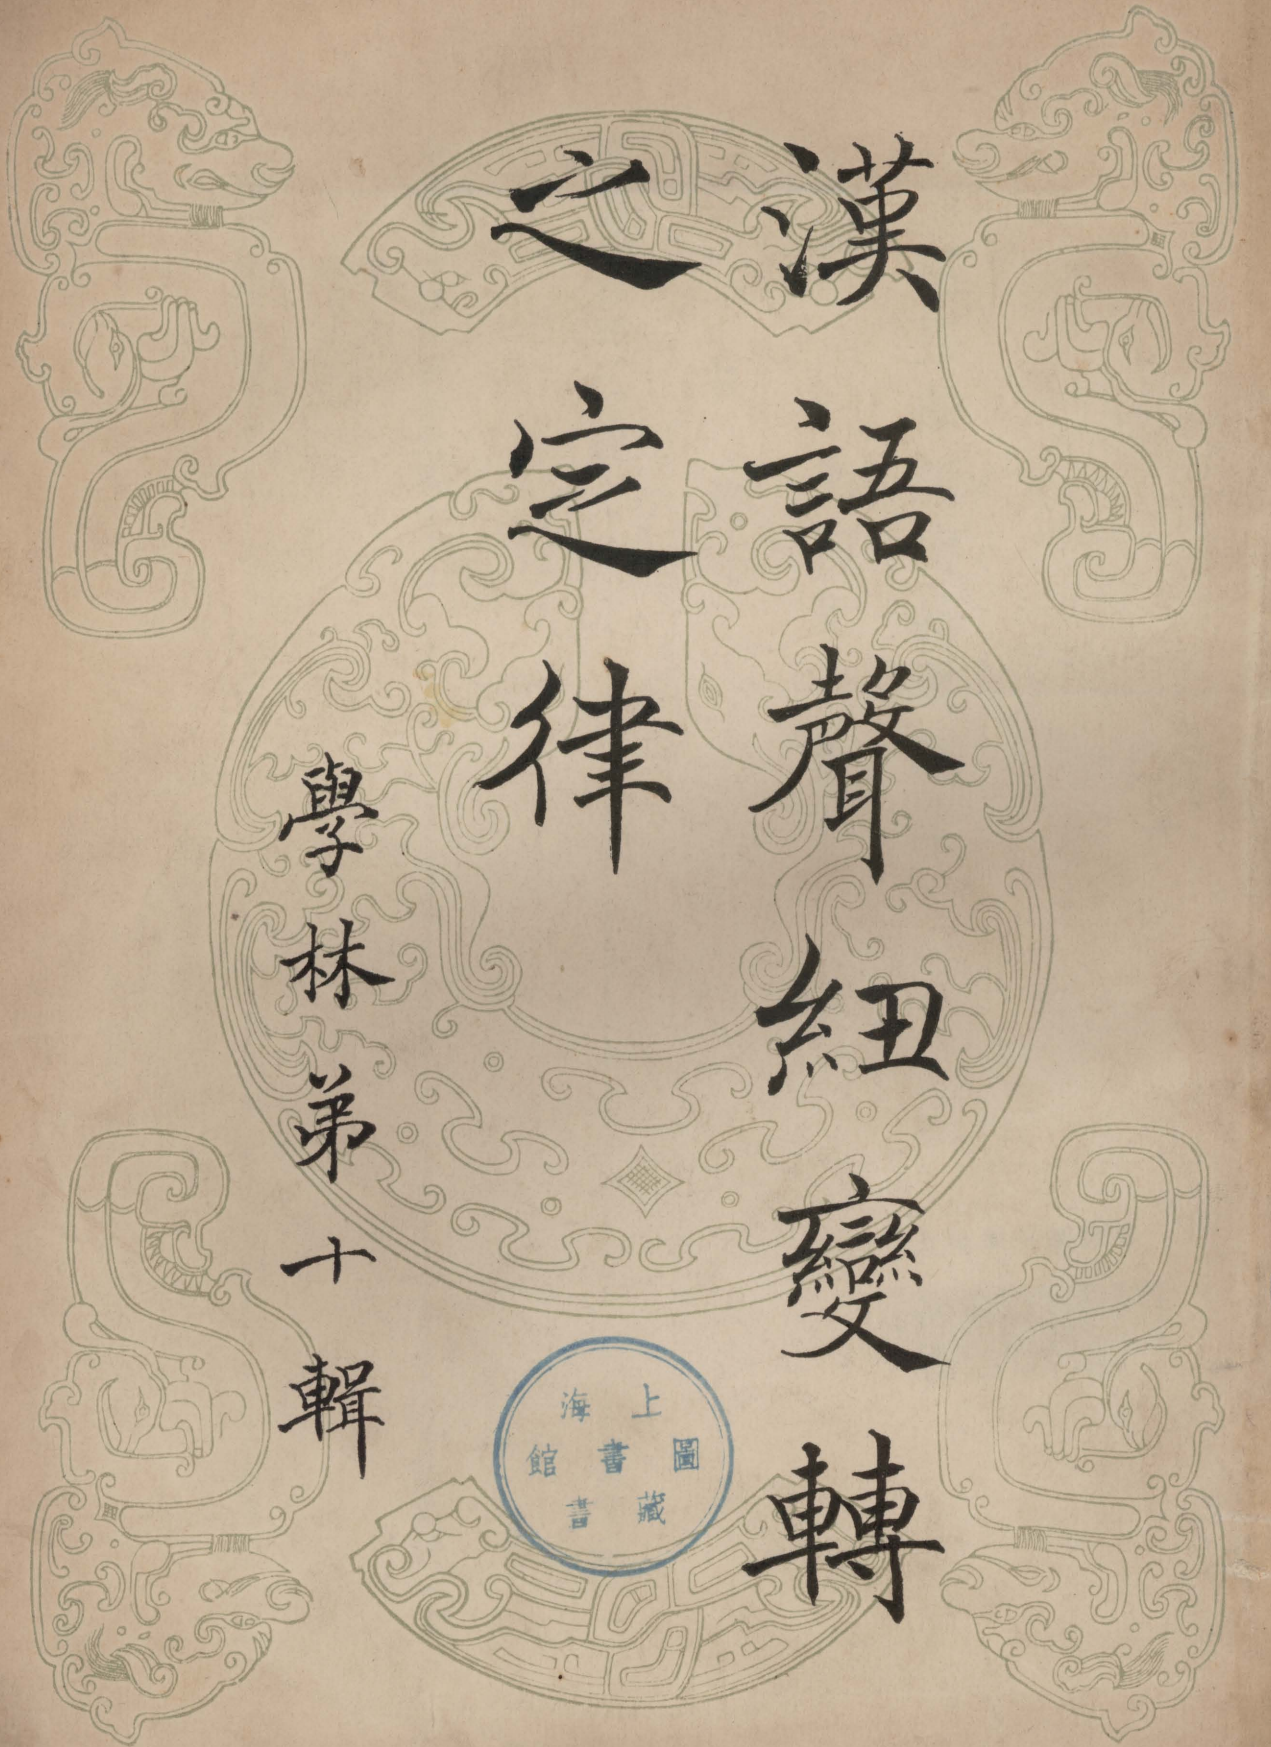 漢語聲紐變轉
之定律
學林弟十輯
上海
圖書館
藏書